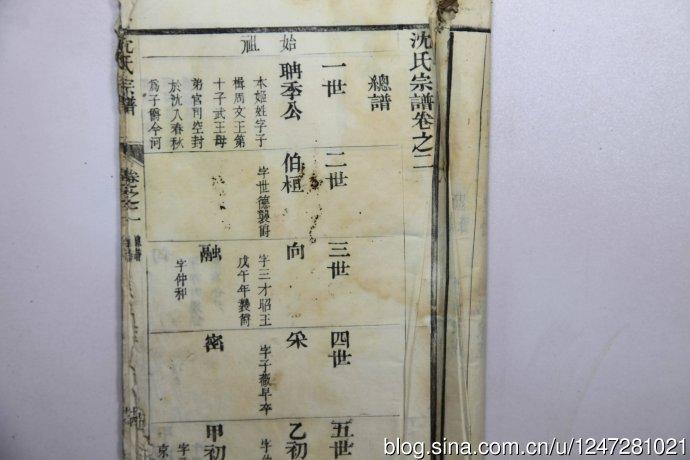 沈氏宗譜卷之二
總譜
始祖
一世
聃季公
本姬姓字子
楫周文王第
十子武王母
弟官司空封
於沈入春秋
爲子爵今河
二世
伯桓
字世德襲爵
三世
向
字三才昭王
戊午年襲爵
融
字仲和
四世
采
字子薇早卒
密
五世
乙初
甲初
字子
京
沈氏宗譜
卷之
blog.sina.com.cn/u/1247281021